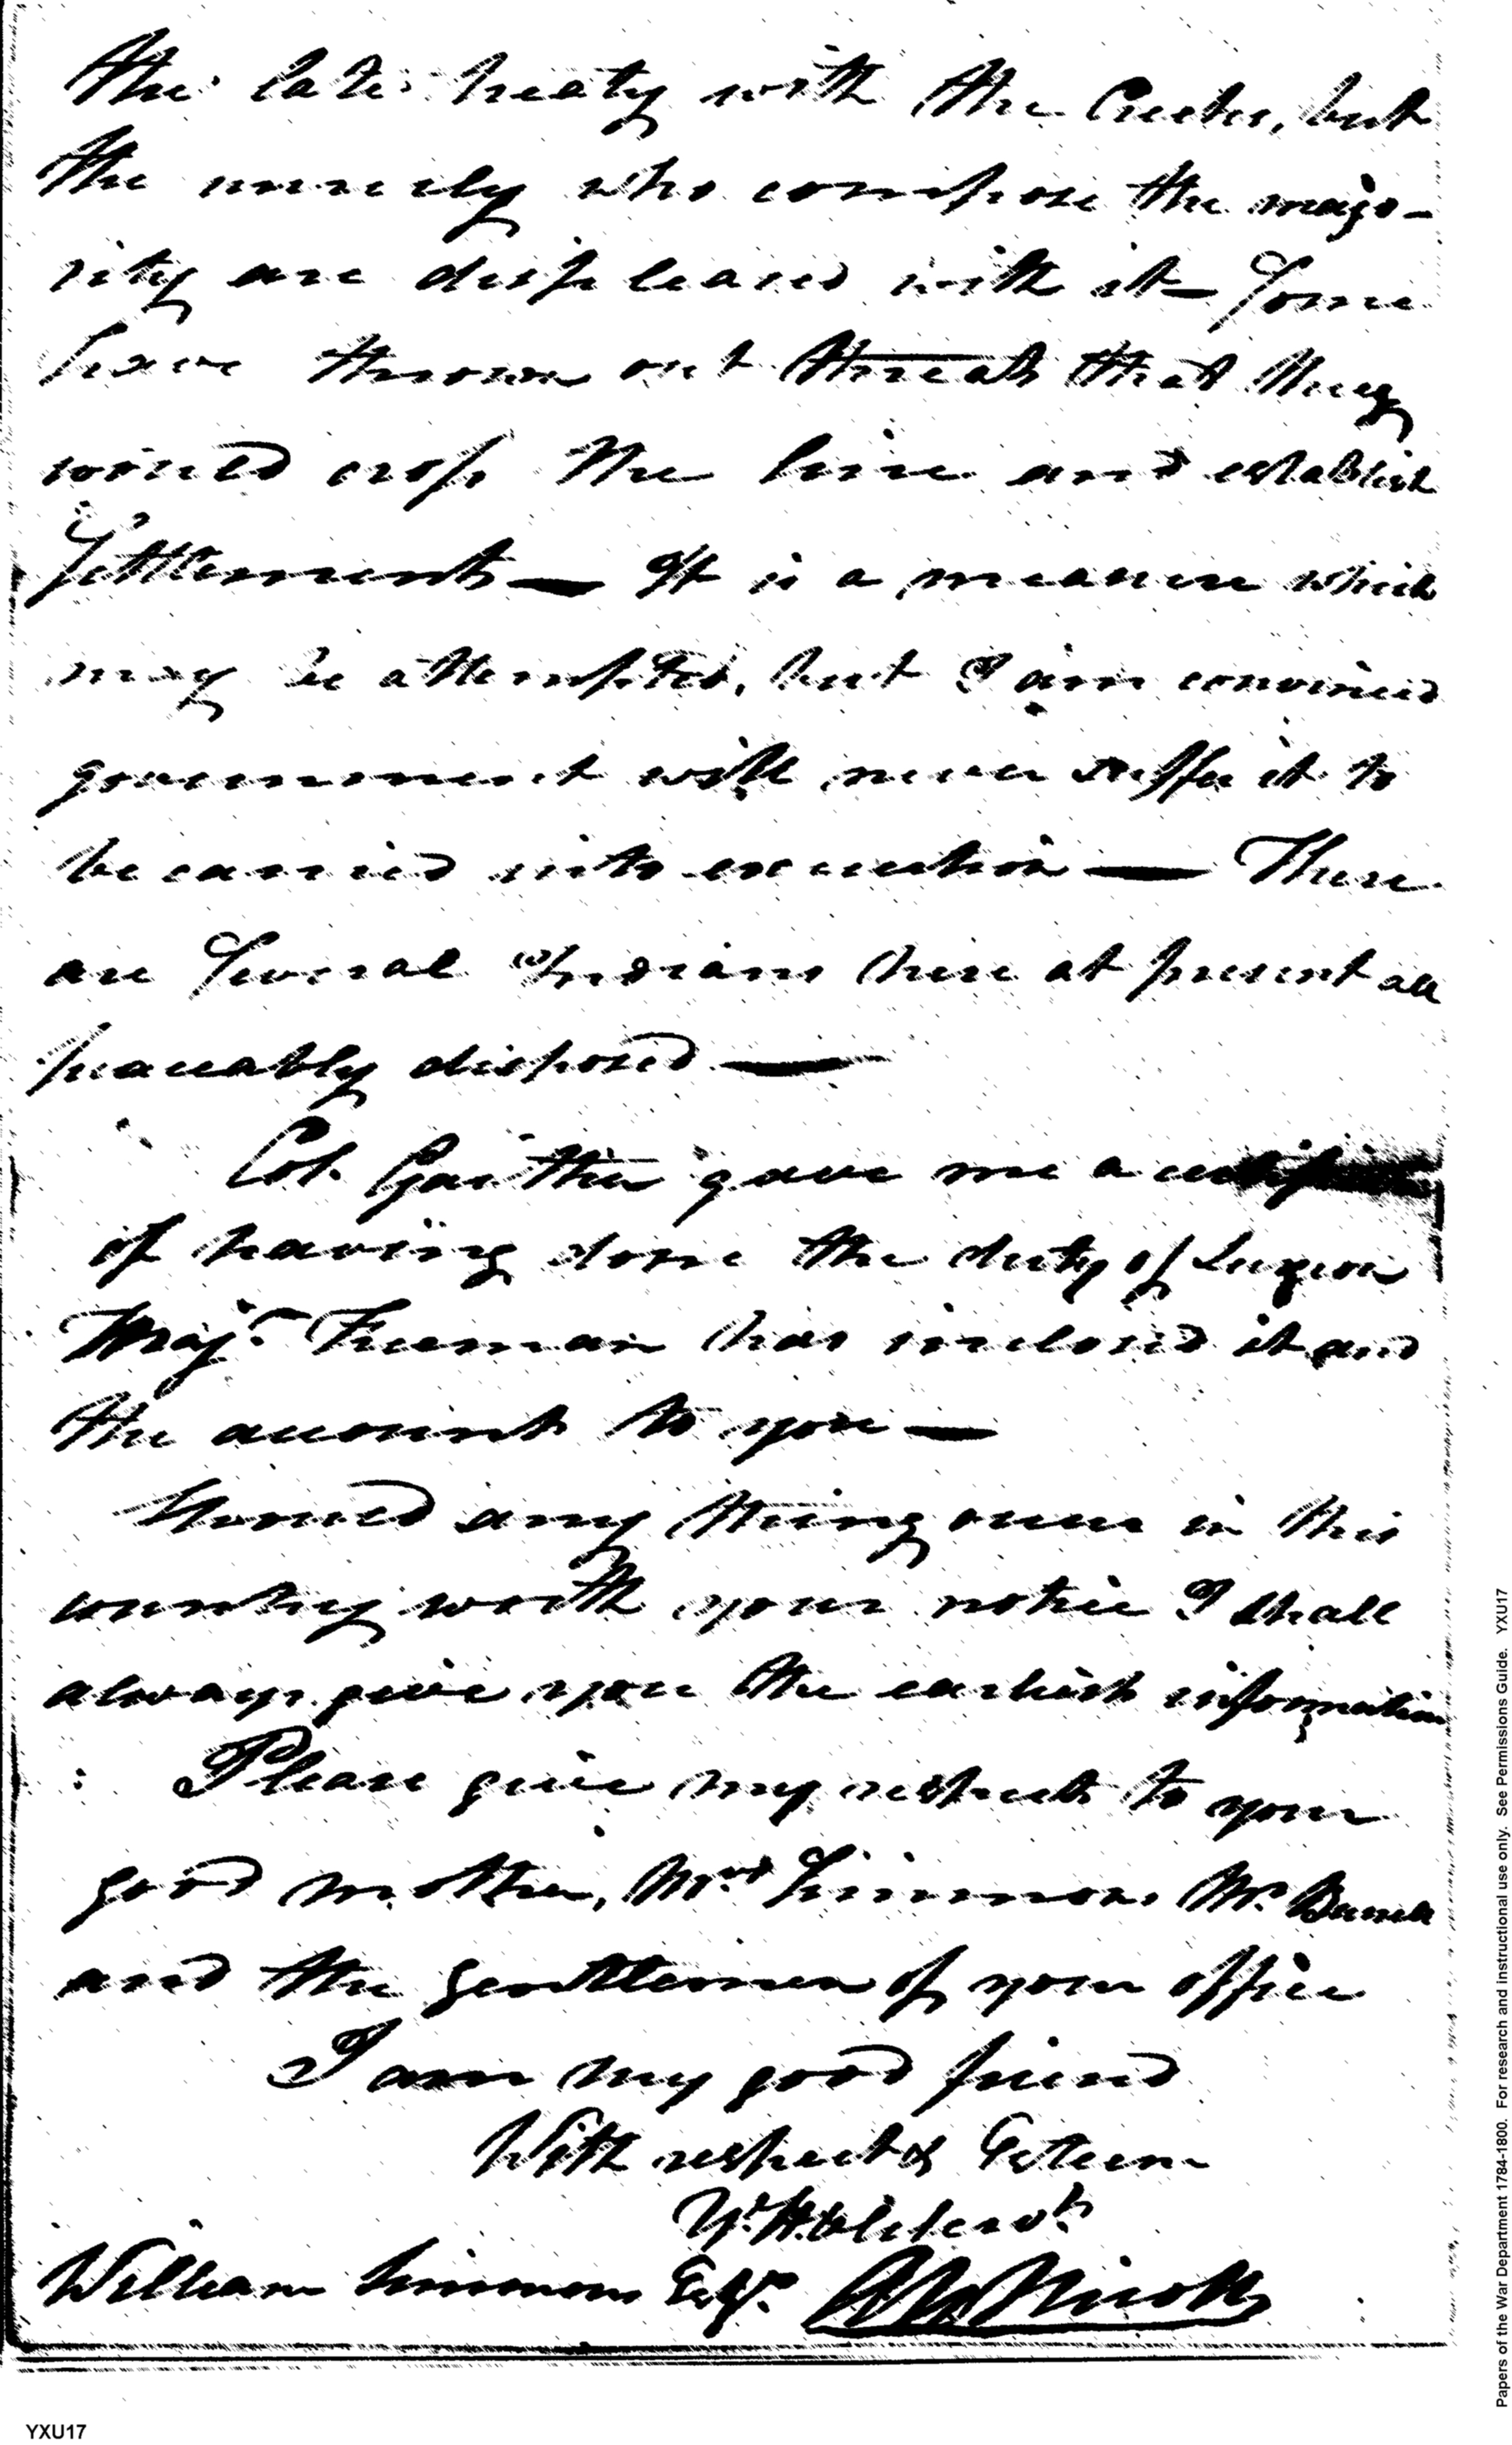 the late treaty with the Creeks, but
the unruly who compose the majo-
rity are displeased with it - Some
have thrown out threats that they
would cross the line and establish
Settlements — It is a measure which
may be attempted, but I am convinced
government will never suffer it to
be carried into execution — There
are Several Indians here at present all
peaceably disposed —
Col. Gaither gave me a certificate
of having done the duty of Surgeon
Majr. Freeman has inclosed it and
the accounts to you —
Should any thing occur in this
country worth your notice I shall
always give you the earliest information
Please give my respects to your
good mother, Mrs Simmons Mr.
and the gentlemen of your office
I am my good friend
With respect & Esteem
Yr. H'ble serv't
William Simmons Esqr.
YXU17
Papers of the War Department 1784-1800. For research and instructional use only. See Permissions Guide. YXU17